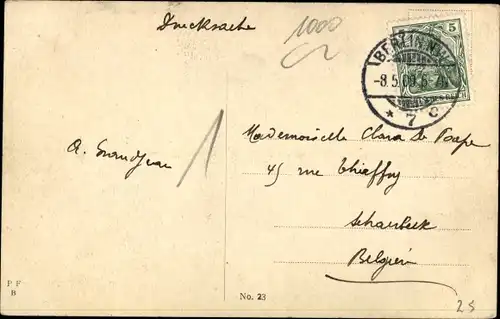 Drucksache
1000
5
BERLIN N.W.
-8.5.09. 6-7N.
* 7 c
Mademoiselle Clara De Pape
A. Grandjean
45 rue Thiéffry
Schaerbeek
Belgien
P F
B
No. 23
25